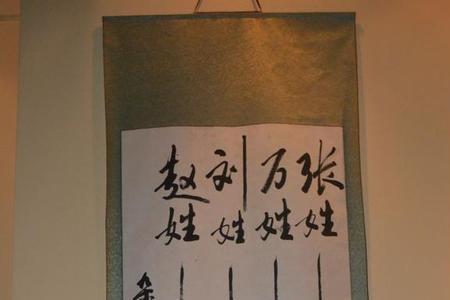 张姓
万姓
刘姓
赵姓